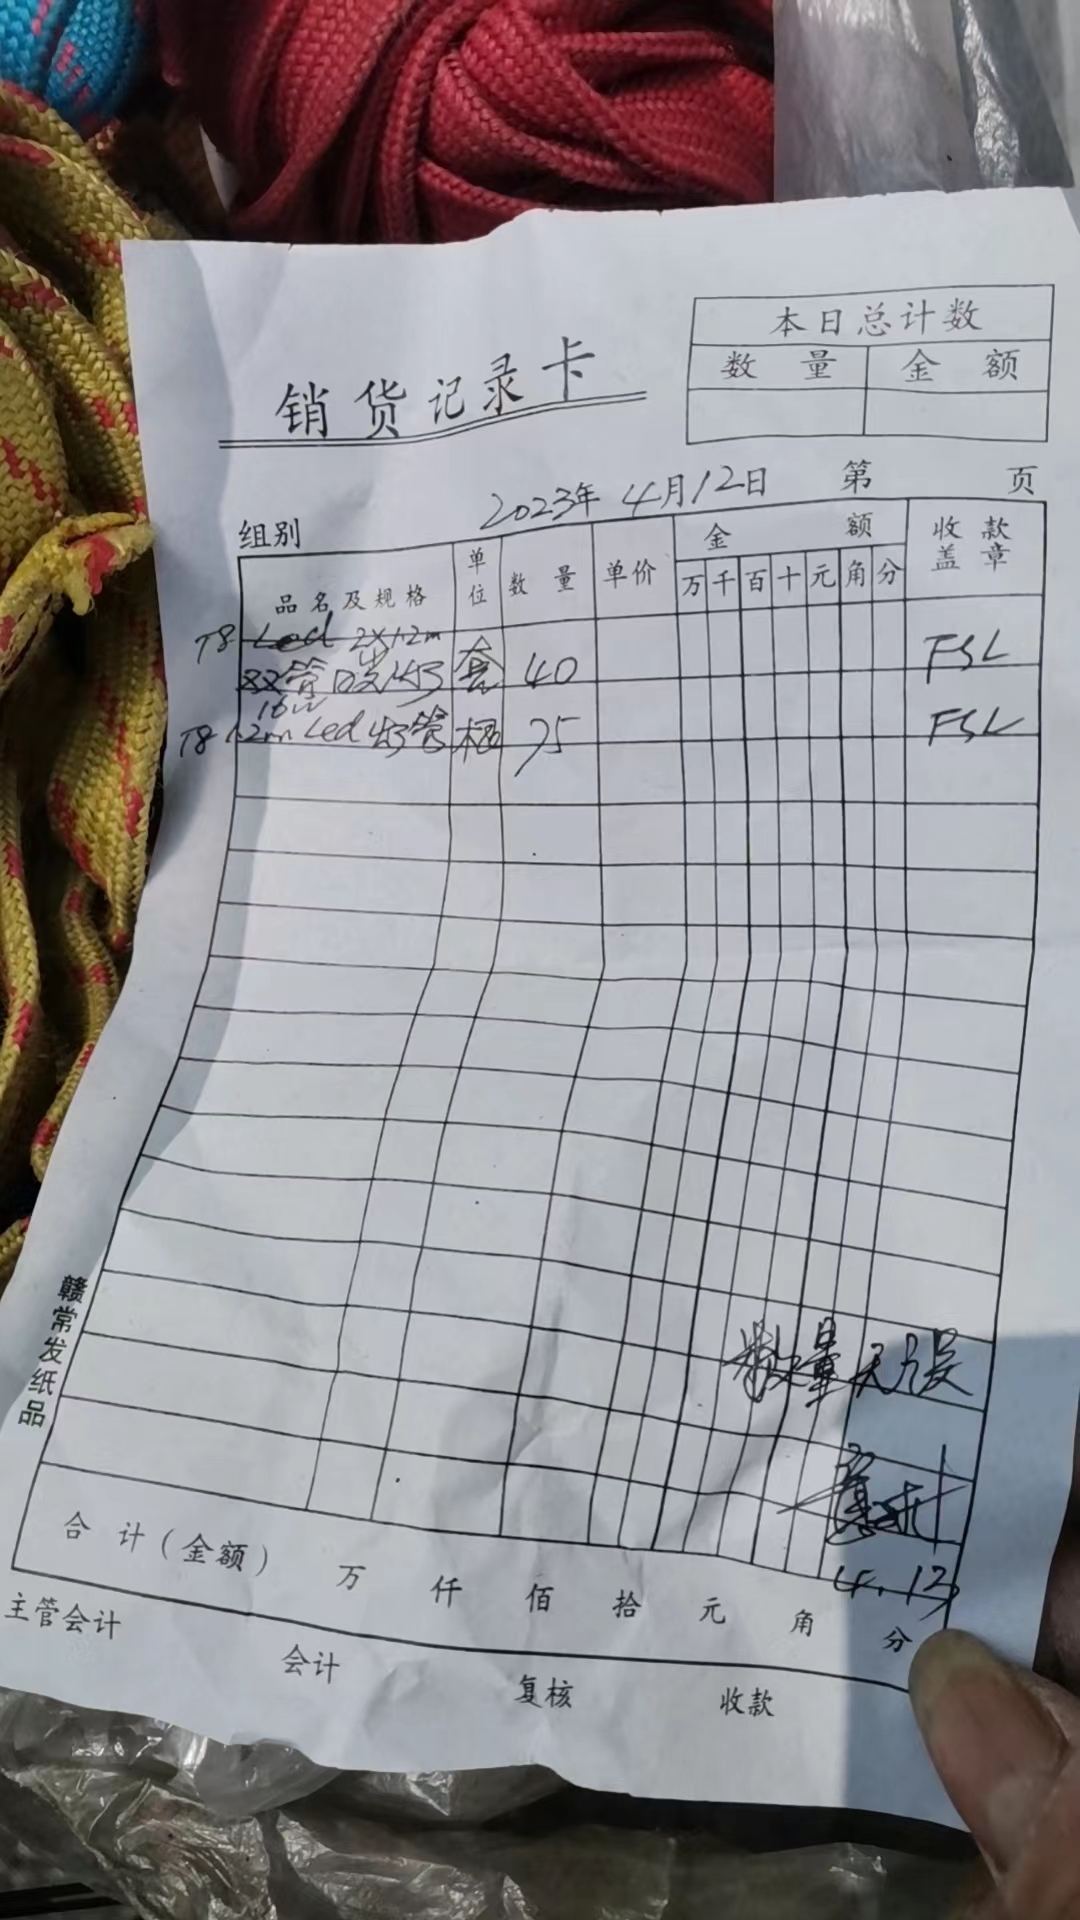 本日总计数
数量 金额
销货记录卡
2023年4月12日 第 页
组别
品名及规格 单位 数量 单价 金额 收款盖章
万 千 百 十 元 角 分
T8 Led 2×1.2m
双管日光灯 套 40 FSL
16W
T8 1.2m Led 灯管 根 75 FSL
数量无误
4.13
合计(金额) 万 仟 佰 拾 元 角 分
主管会计 会计 复核 收款
赣常发纸品